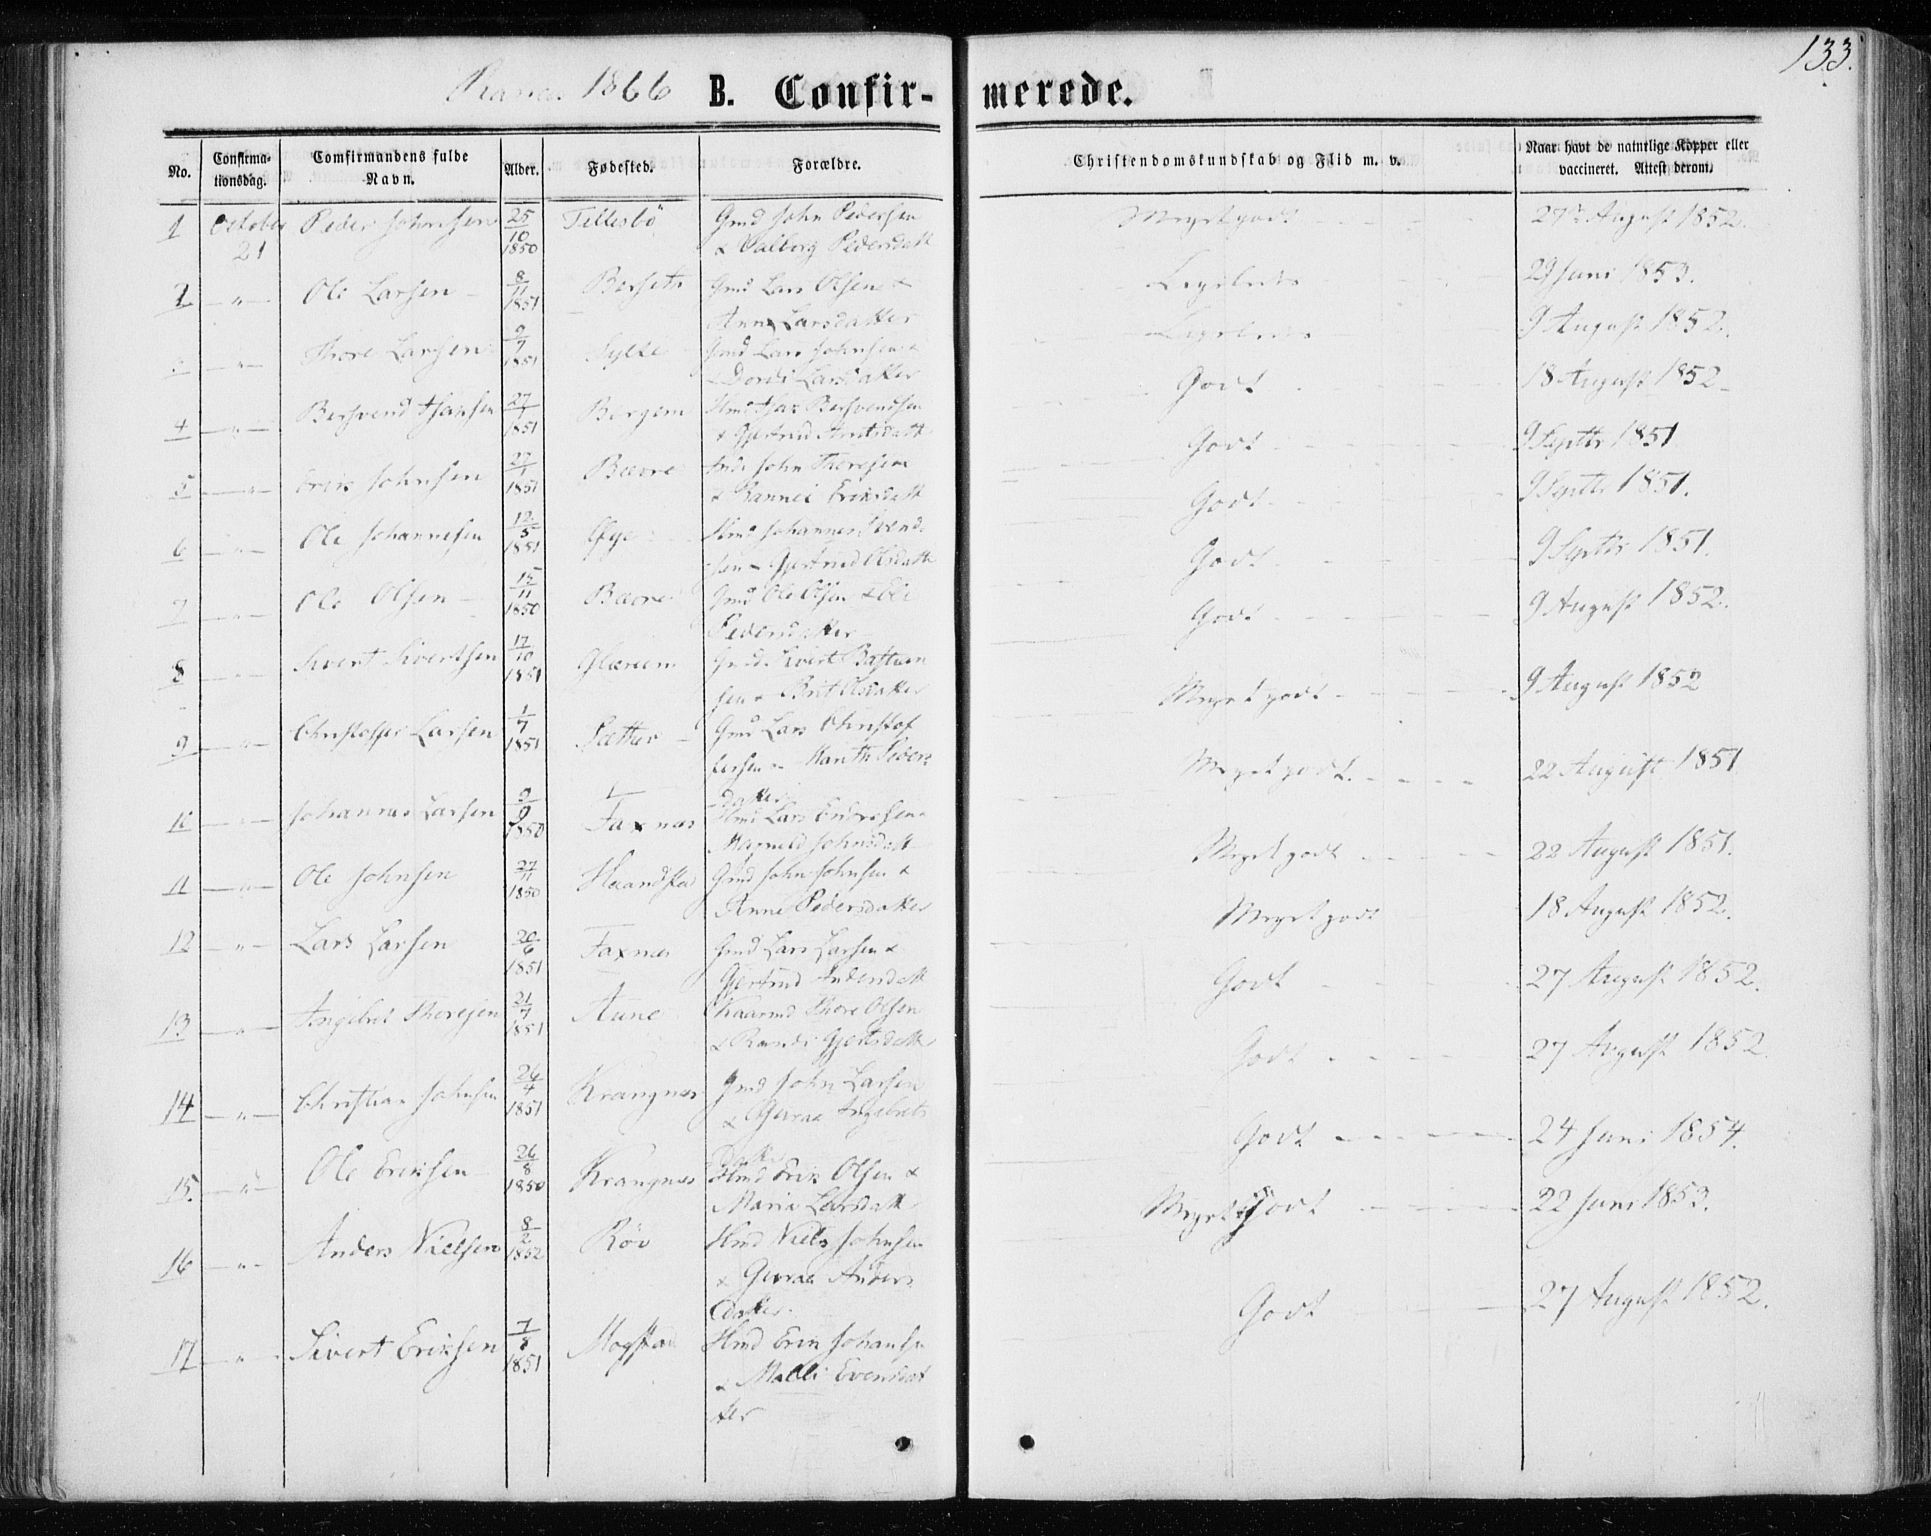 133.
Ranes 1866 B. Confir- merede.
No. Confirma- tionsdag. Comfirmandens fulde Navn. Alder. Fødested. Forældre. Christendomskundskab og Flid m. v. Naar havt de naturlige Kopper eller vaccineret. Attest derom.
1 October 21 Peder Johnsen 25/10 1850 Tellesbö Gmd John Pedersen & Valborg Pedersdatt Meget godt 27de August 1852.
2 " Ole Larsen 8/11 1851 Berseth Gmd Lars Olsen & Anne Larsdatter 29 Juni 1853.
" Thore Larsen 1851 Sylte Gmd Lars Johnsen & Dordi Larsdatter 9 August 1852.
4 " Bersvend 27/1 1851 Bergem Hmd Bersvendsen & Gjertrud Arntsdatt Godt 18 August 1852
5 " Erik Johnsen 27/1 1851 Bæore John Thoresen & Rannei Eriksdatt Godt 9 Septbr 1851
6 " Ole Johannesen 12/5 1851 Øye Hmd Johannes Svend- sen & Gjertrud Olsdatt Godt 9 Septbr 1851.
7 " Ole Olsen 15/11 1850 Bæore Gmd Ole Olsen & Eli Pedersdatter Godt 9 Septbr 1851.
8 " Sivert Sivertsen 17/10 1851 Glæreem Gmd Sivert Bastian sen & Brit Olsdatter Godt 9 August 1852.
9 " Christopher Larsen 1/7 1851 Sæther Gmd Lars Christof fersen & Marith Sivers datter Meget godt 9 August 1852
10 " Johannes Larsen 9/9 1850 Faxnes Hmd Lars Endresen & Magnild Johnsdatt Meget godt 22 August 1851
11 " Ole Johnsen 27/11 1850 Haandstad Gmd John Johnsen & Anne Pedersdatter Meget godt 22 August 1851.
12 " Lars Larsen 20/6 1851 Faxnes Gmd Lars Larsen & Gjertrud Andersdatt Meget godt 18 August 1852.
13 " Ingebret Thoresen 21/7 1851 Aune Thore Olsen & Randi Gjertsdatt Godt 27 August 1852.
14 " Christian Johnsen 26/4 1851 Krangnes Gmd John Larsen & Guraa Ingebrets datter Godt 27 August 1852
15. " Ole Eriksen 26/8 1850 Krangnes Hmd Erik Olsen & Maria Larsdatt Godt 24 Juni 1854.
16 " Anders Nielsen 8/2 1852 Röv Hmd Niels Johnsen & Guraa Anders datter. Meget godt 22 Juni 1853.
17 " Sivert Eriksen 7/8 1851 Mogstad Hmd Erik Johansen & Malli Evensdat ter Godt 27 August 1852.